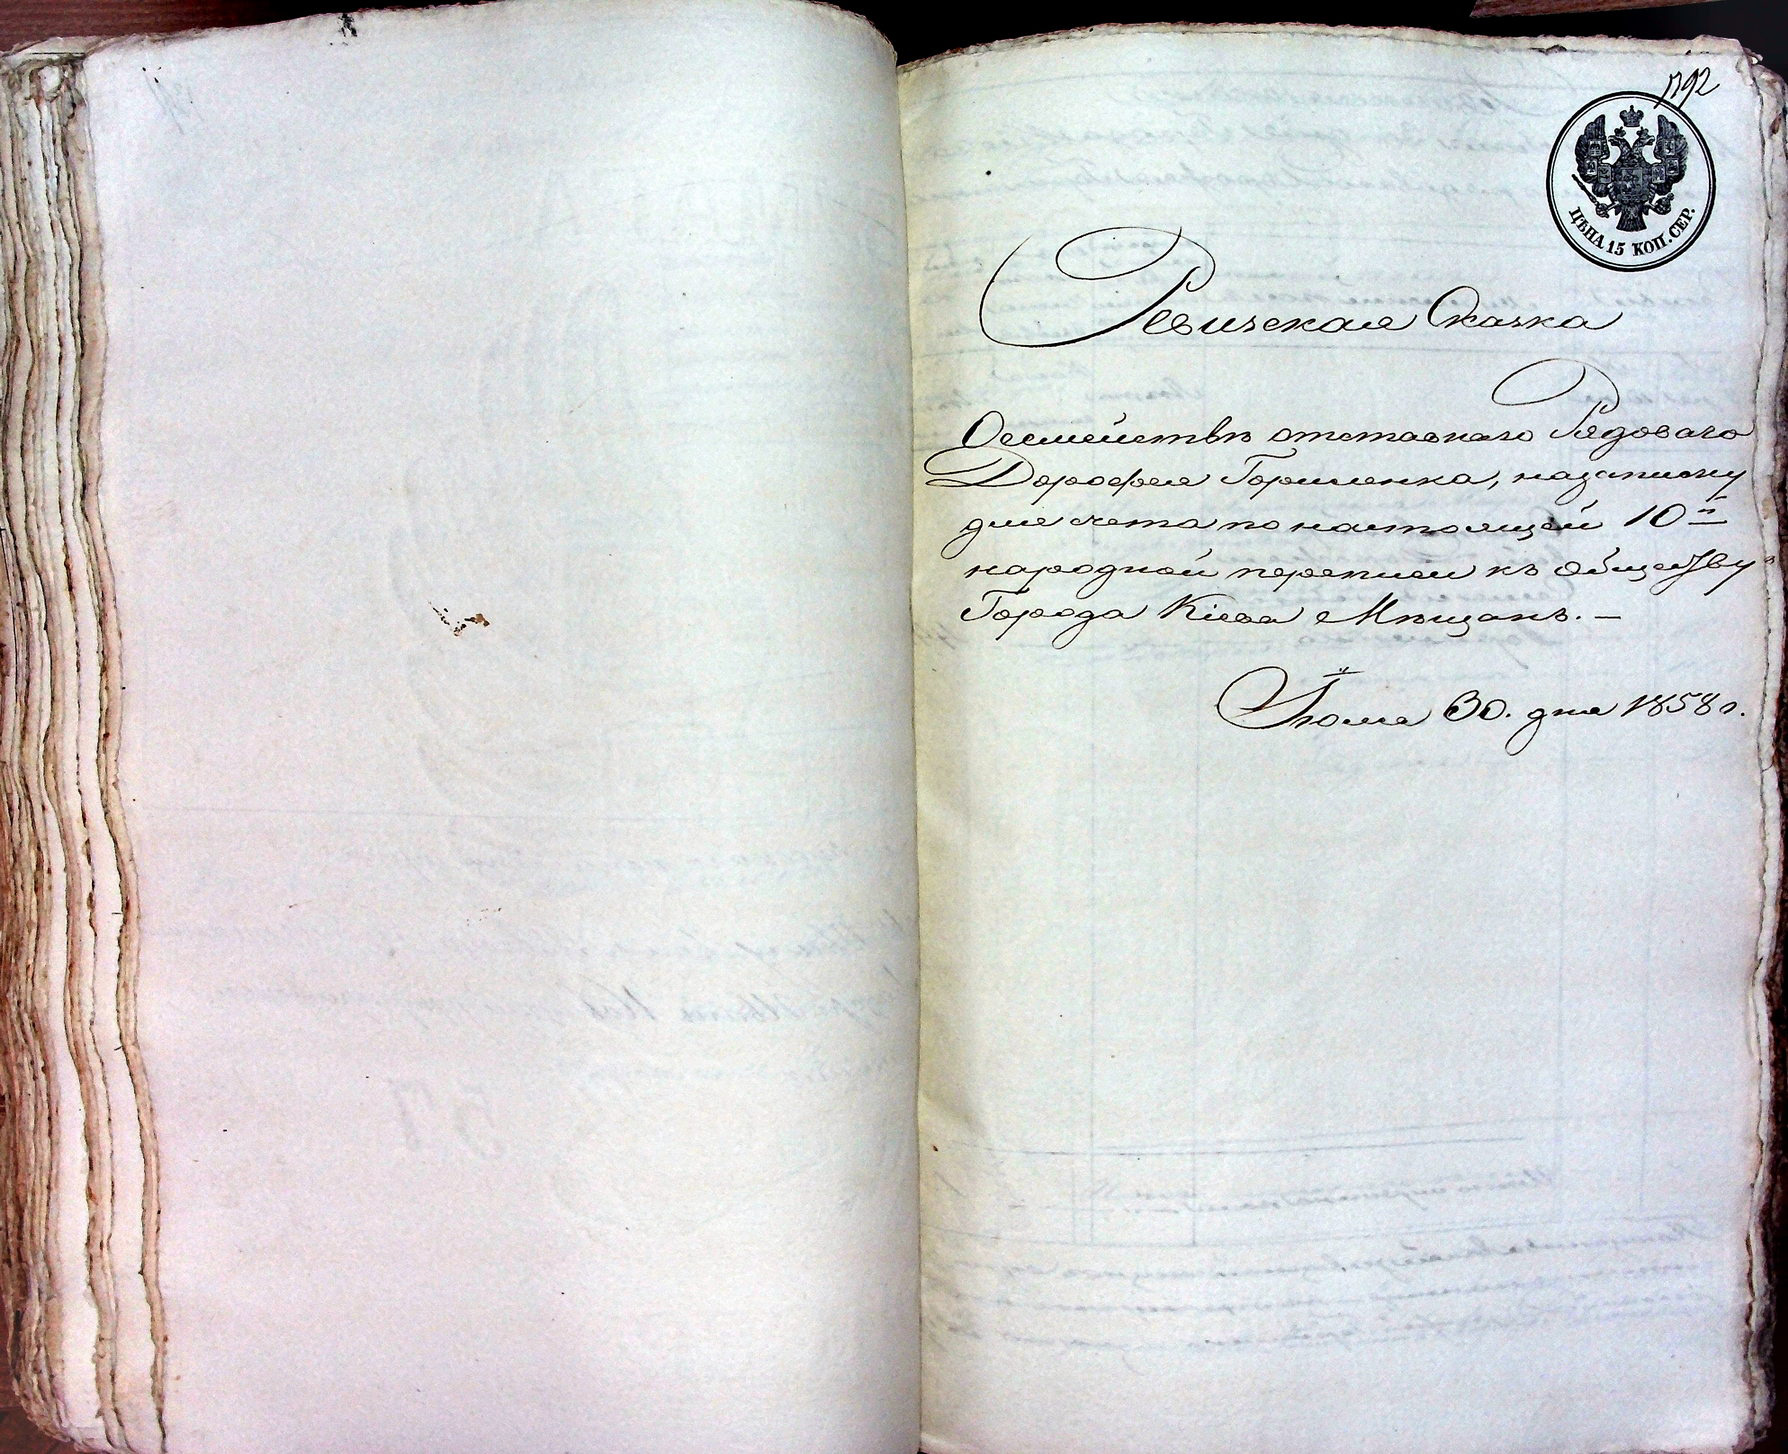 792
ЦѢНА 15 КОП. СЕР.
Ревизская Сказка
О семействѣ отставнаго Рядоваго
Дорофея Гориленка, на записку
для счета по настоящей 10й
народной переписи къ обществу
Города Кіева Мѣщанъ. —
Іюля 30. дня 1858 г.